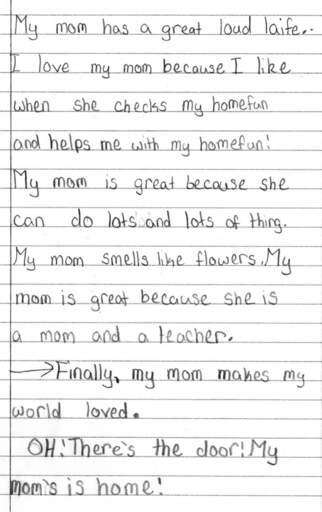 My mom has a great loud laife..
I love my mom because I like
when she checks my homefun
and helps me with my homefun!
My mom is great because she
can do lots and lots of thing.
My mom smells like flowers. My
mom is great because she is
a mom and a teacher.
→Finally, my mom makes my
world loved.
OH! There's the door! My
mom's is home!